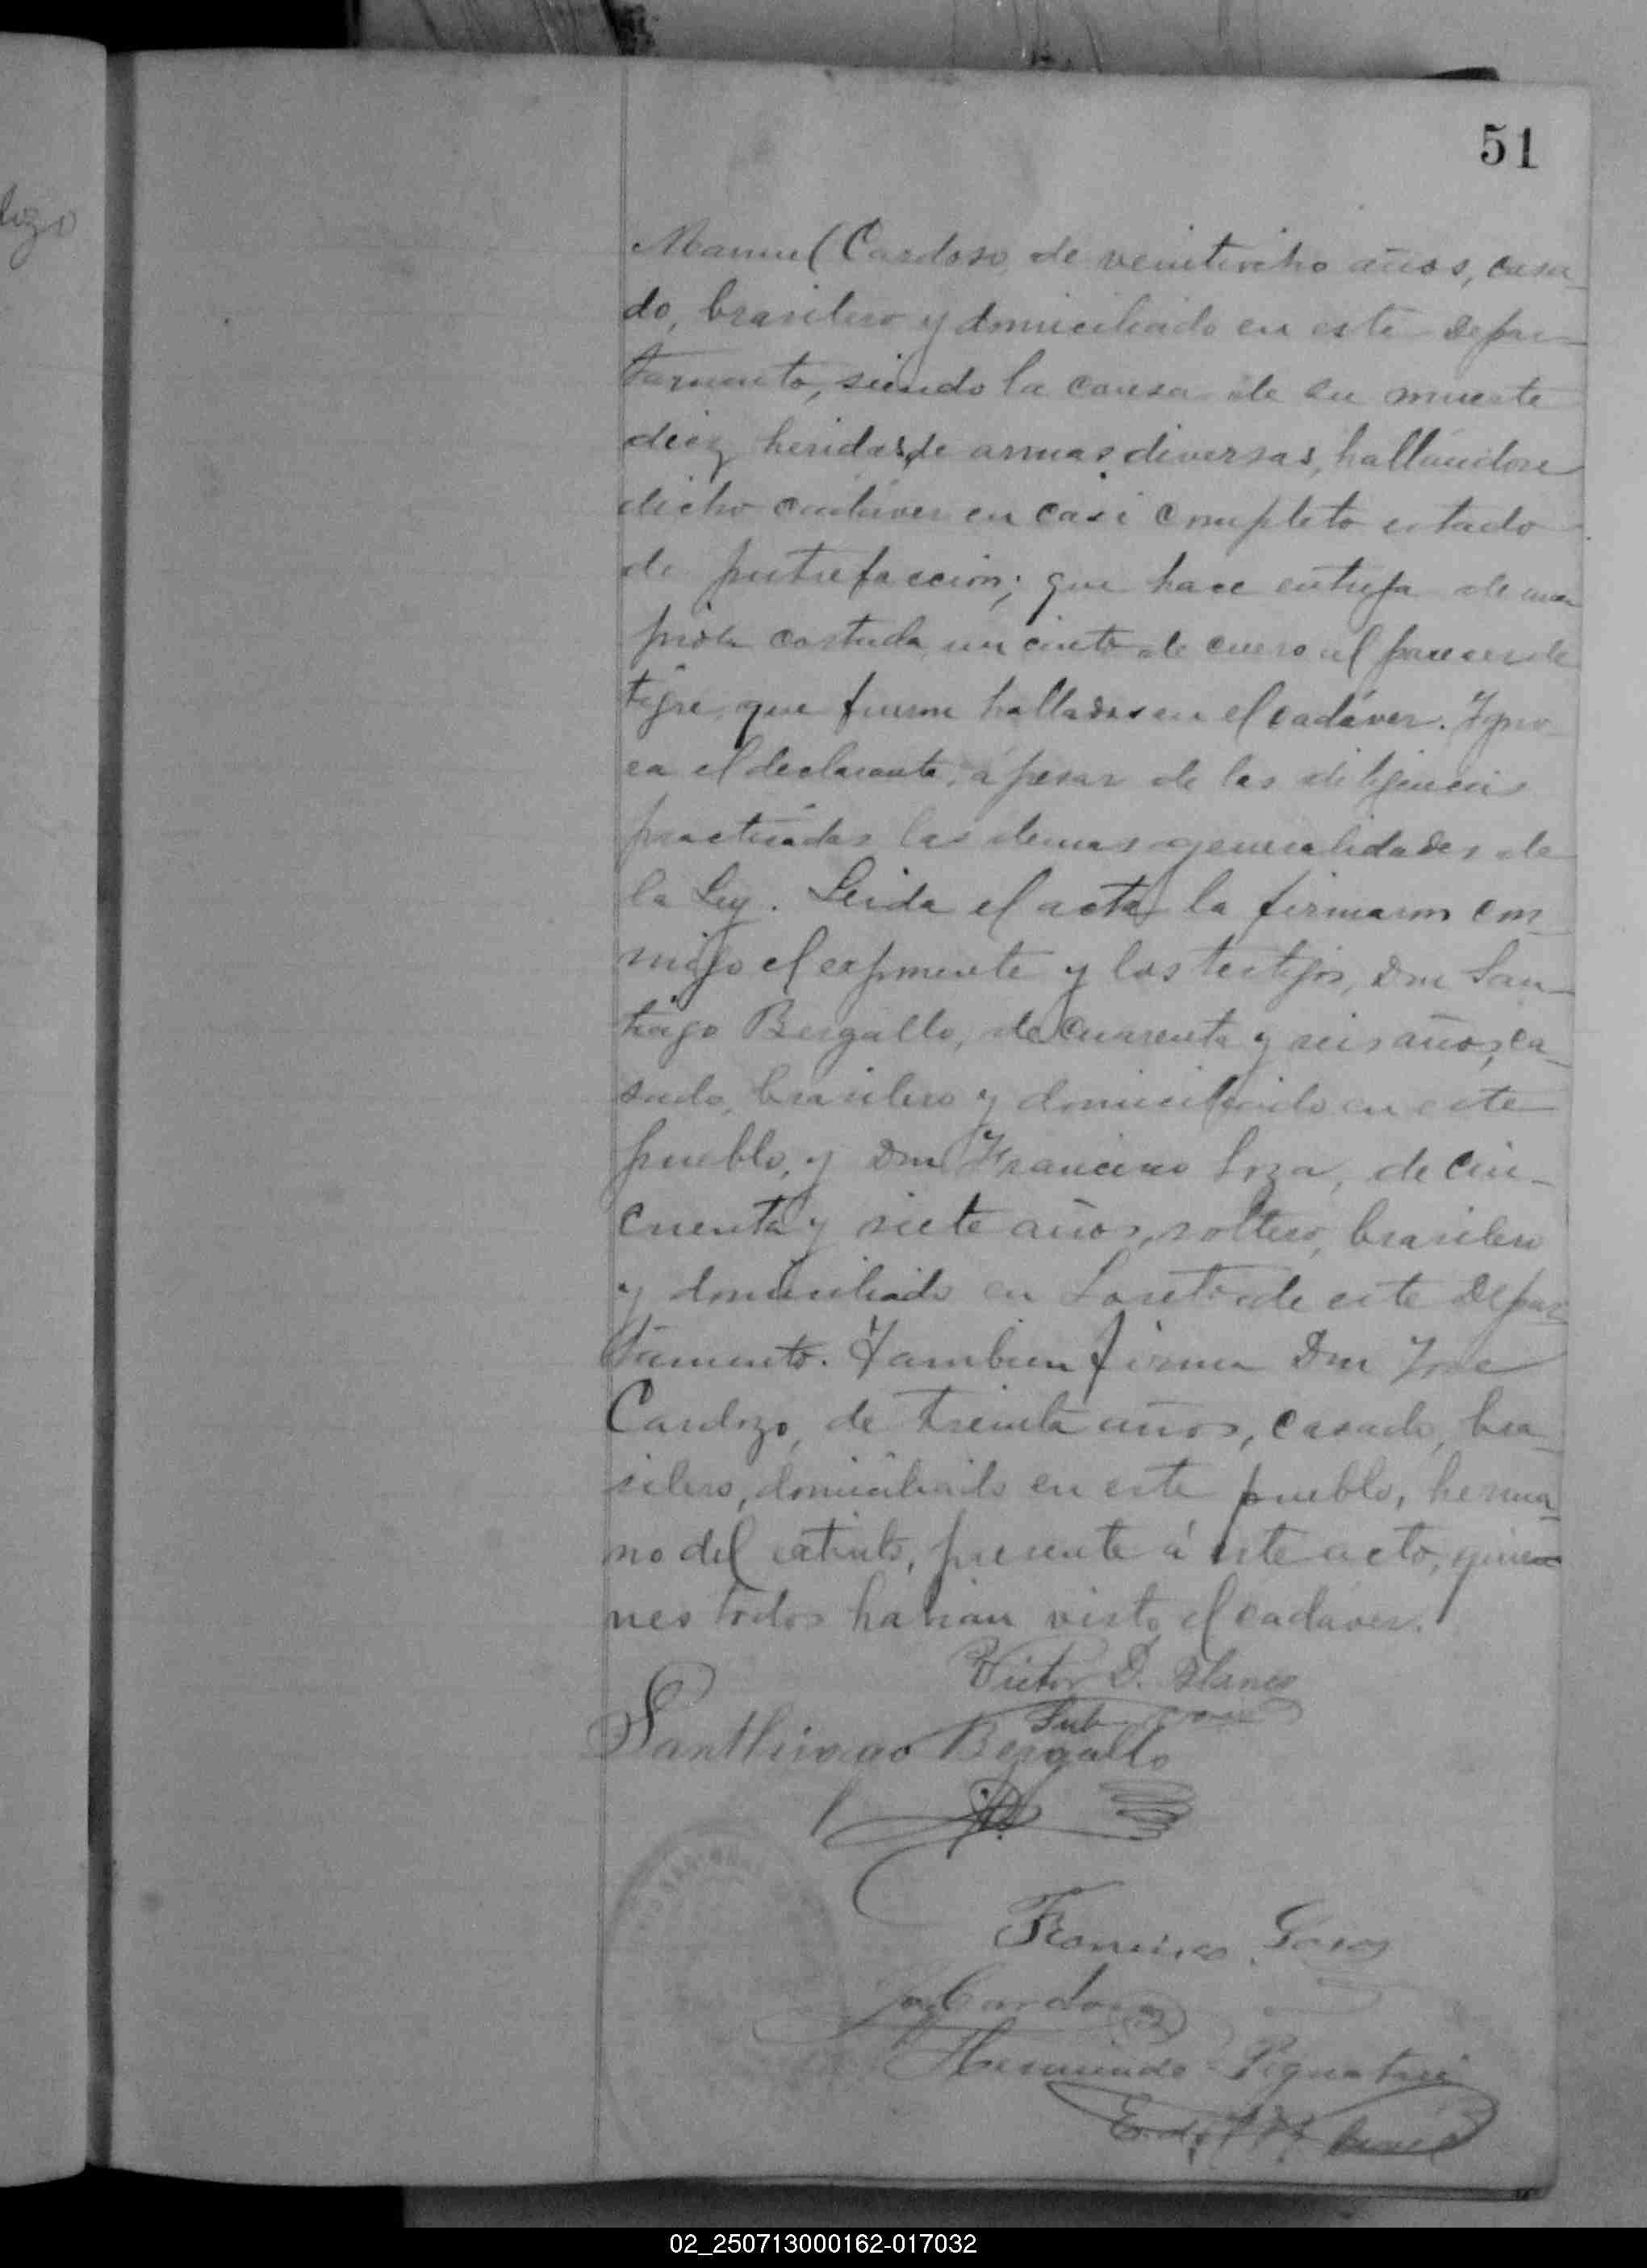 51
Manuel Cardoso, de veintiocho años, casa-
do, brasilero y domiciliado en este Depar-
tamento, siendo la causa de su muerte
diez heridas de armas diversas, hallándose
dicho cadáver en casi completo estado
de putrefaccion; que hace entrega de una
cortada, un cinto de cuero al parecer de
tigre, que fueron hallados en el cadáver. Igno-
ra el declarante, á pesar de las diligencias
practicadas las demas generalidades de
la Ley. Leida el acta la firmaron con-
migo el exponente y los testigos, Don San-
tiago Bergallo, de cuarenta y seis años, ca-
sado, brasilero y domiciliado en este
pueblo, y Don Francisco Soza, de cin-
cuenta y siete años, soltero, brasilero
y domiciliado en Loreto de este Depar-
tamento. Tambien firma Don José
Cardozo, de treinta años, casado, bra-
silero, domiciliado en este pueblo, herma-
no del extinto, presente á este acto, quie-
nes todos habian visto el cadáver.
Victor D. Blanco
Sub
Santhiago Bergallo
Francisco
Cardozo
Hermindo Pignatari
02_250713000162-017032